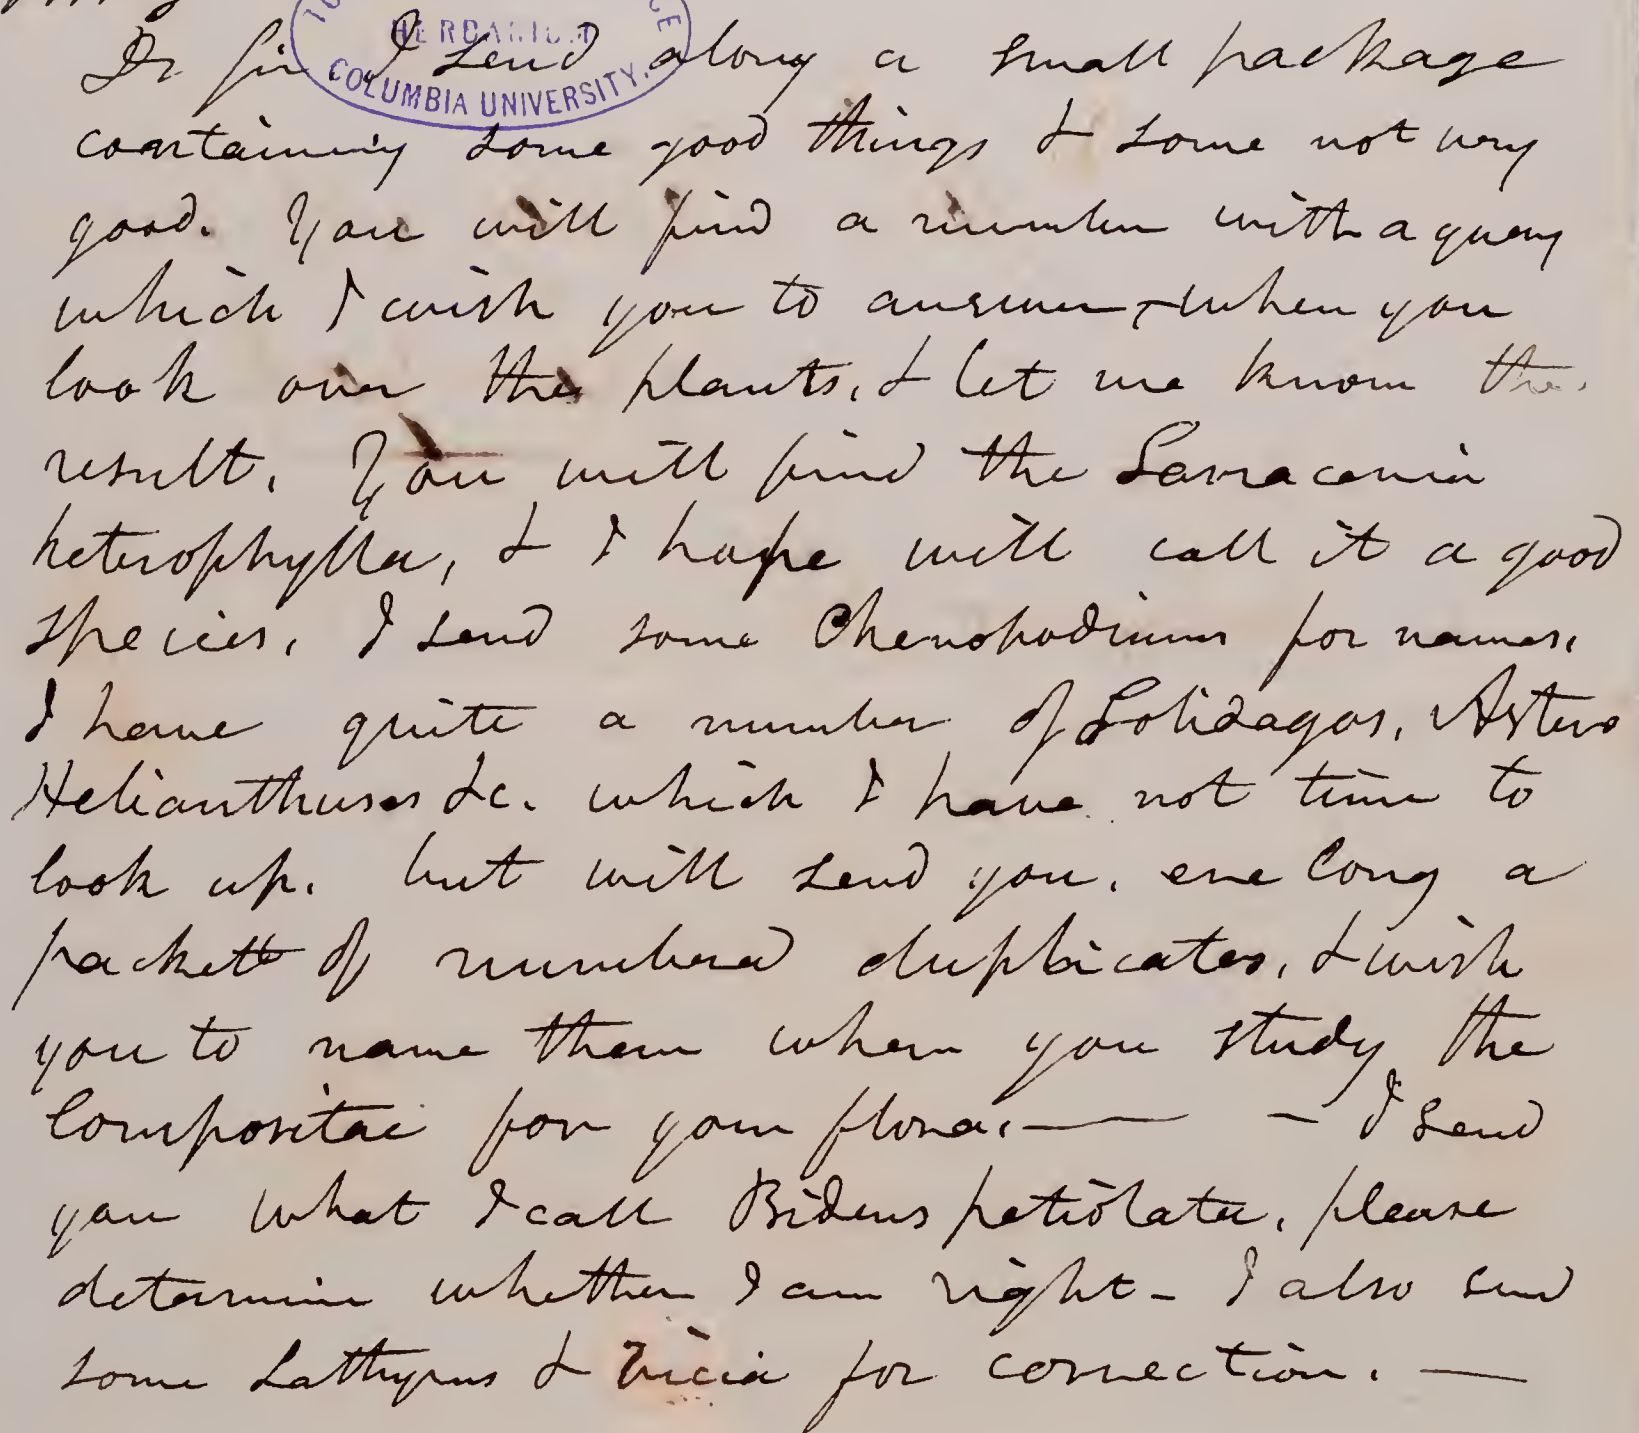 HERBARIUM
COLUMBIA UNIVERSITY.
Dr Sir I send along a small package
containing some good things & some not very
good. You will find a number with a query
which I wish you to answer, when you
look over the plants, & let me know the
result. You will find the Sarracenia
heterophylla, & I hope will call it a good
species. I send some Chenopodiums for names.
I have quite a number of Solidagos, Asters
Helianthuses &c. which I have not time to
look up. but will send you, ere long a
packett of numbered duplicates, & wish
you to name them when you study the
Compositae for your flora. — — I send
you what I call Bidens petiolata, please
determine whether I am right - I also send
some Lathyrus & Vicia for correction. —